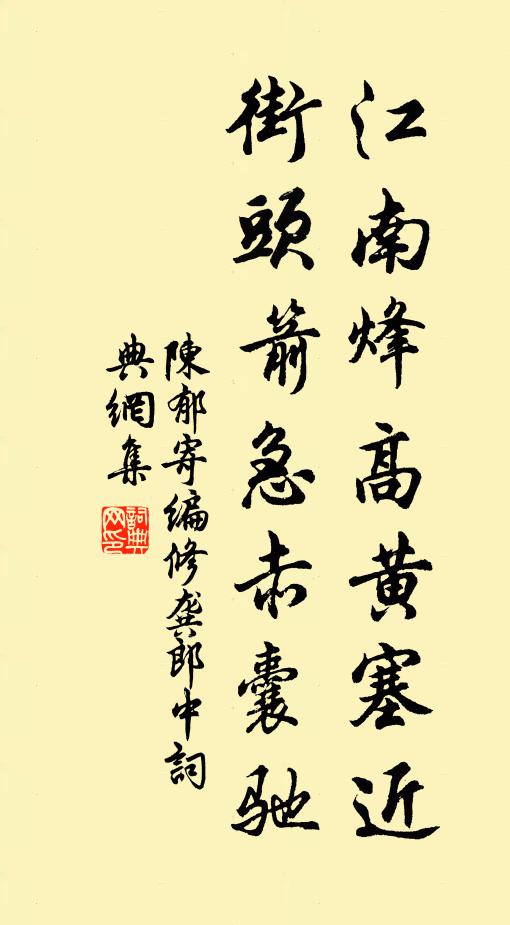 江南烽高黃塞近
街頭箭急赤囊馳
陳郁寄編修龔郎中詞
典網集
詞典
网印